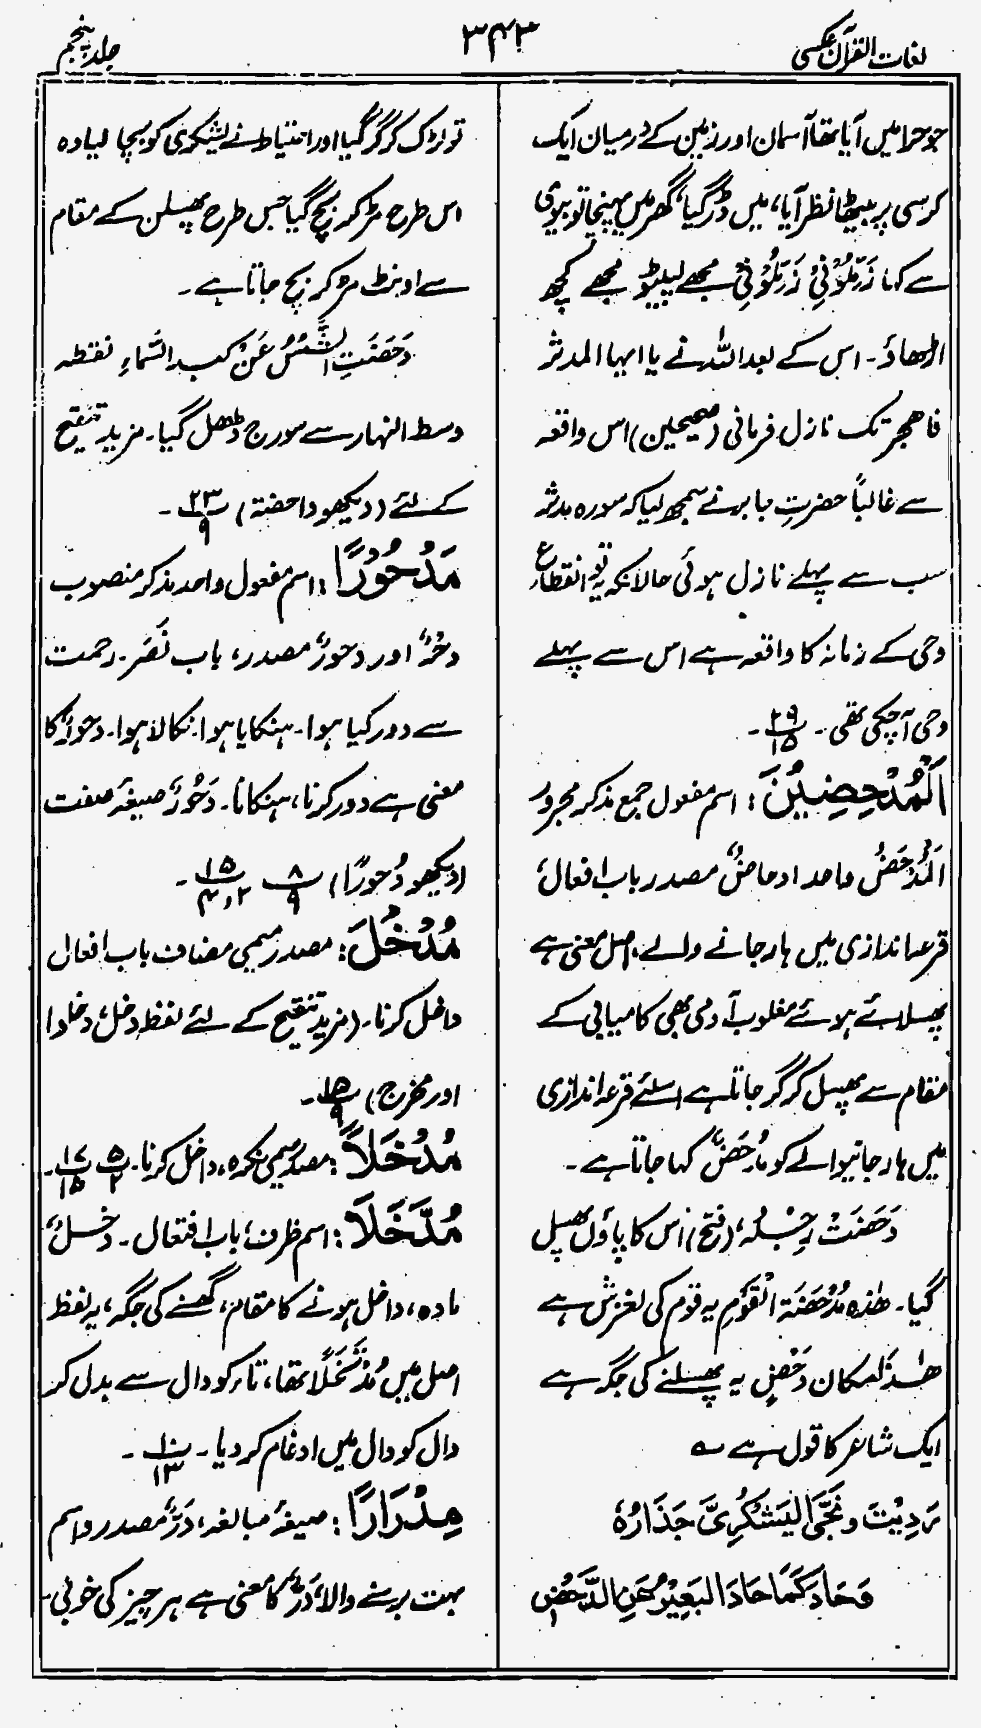 لغات القرآن عکسی
۳۴۳
جلد پنجم
جو حرا میں آیا تھا آسمان اور زمین کے درمیان ایک
کرسی پر بیٹھا نظر آیا، میں ڈر گیا، گھر میں پہنچا تو بیوی
سے کہا زَمِّلُوْنِیْ زَمِّلُوْنِیْ مجھے لپیٹو مجھے کچھ
اڑھاؤ۔ اس کے بعد اللہ نے یا ایہا المدثر
فاھجر تک نازل فرمائی (صحیحین) اس واقعہ
سے غالباً حضرتِ جابر نے سمجھ لیا کہ سورہ مدثر
سب سے پہلے نازل ہوئی حالانکہ یہ تو انقطاع
وحی کے زمانہ کا واقعہ ہے اس سے پہلے
وحی آچکی تھی۔ ۲۹/۱۵۔
اَلْمُدْحَضِیْنَ: اسم مفعول جمع مذکر مجرور
اَلْمُدْحَضُ واحد ادحاضٌ مصدر باب افعال،
قرعہ اندازی میں ہار جانے والے، اصل معنی ہے
پھسلائے ہوئے مغلوب آدمی بھی کامیابی کے
مقام سے پھسل کر گر جاتا ہے اسلئے قرعہ اندازی
میں ہار جانیوالے کو مُدْحَضٌ کہا جاتا ہے۔
دَحَضَتْ رِجْلُہٗ، (فتح) اس کا پاؤں پھسل
گیا۔ ھٰذہ مُدْحَضَۃ الْقَوْمِ یہ قوم کی لغزش ہے
ھٰذَا مکان دَحْضٍ یہ پھسلنے کی جگہ ہے
ایک شاعر کا قول ہے ؎
رَدِیْتَ و نَجَّی الْیَشْکُرِیَّ حِذَارُہٗ
وَحَادَ کَمَا حَادَ الْبَعِیْرُ عَنِ الدَّحْضِ
تو لڑک کر گر گیا اور احتیاط نے یشکری کو بچا لیا وہ
اس طرح مڑ کر بچ گیا جس طرح پھسلن کے مقام
سے اونٹ مڑ کر بچ جاتا ہے۔
دَحَضَتِ الشَّمْسُ عَنْ کبد السَّماءِ نقطہ
وسط النہار سے سورج ڈھل گیا۔ مزید تنقیح
کے لئے (دیکھو داحضۃ) ۲۳/۹۔
مَدْحُوْرًا: اسم مفعول واحد مذکر منصوب
دَحْرٌ اور دحورٌ مصدر، باب نَصَرَ۔ رحمت
سے دور کیا ہوا۔ ہنکایا ہوا۔ نکالا ہوا۔ دحورٌ کا
معنی ہے دور کرنا، ہنکانا۔ دَحُوْرٌ صیغۂ صفت
(دیکھو دُحورًا) ۸/۹ ۱۵/۲،۴۔
مُدْخَلَ: مصدر میمی مضاف باب افعال
داخل کرنا۔ (مزید تنقیح کے لئے لفظ دخل، دخلوا
اور مخرج) ۱۵/۹۔
مُدْخَلًا: مصدر میمی نکرہ، داخل کرنا۔ ۵/۲ ۱۷/۱۵۔
مُدَّخَلًا: اسم ظرف، باب افتعال۔ دخلٌ،
مادہ، داخل ہونے کا مقام، گھسنے کی جگہ، یہ لفظ
اصل میں مُدْتَخَلًا تھا، تاء کو دال سے بدل کر
دال کو دال میں ادغام کر دیا۔ ۱۰/۱۳۔
مِدْرَارًا: صیغۂ مبالغہ، دَرٌّ مصدر و اسم
بہت برسنے والا، دَرٌّ کا معنی ہے ہر چیز کی خوبی